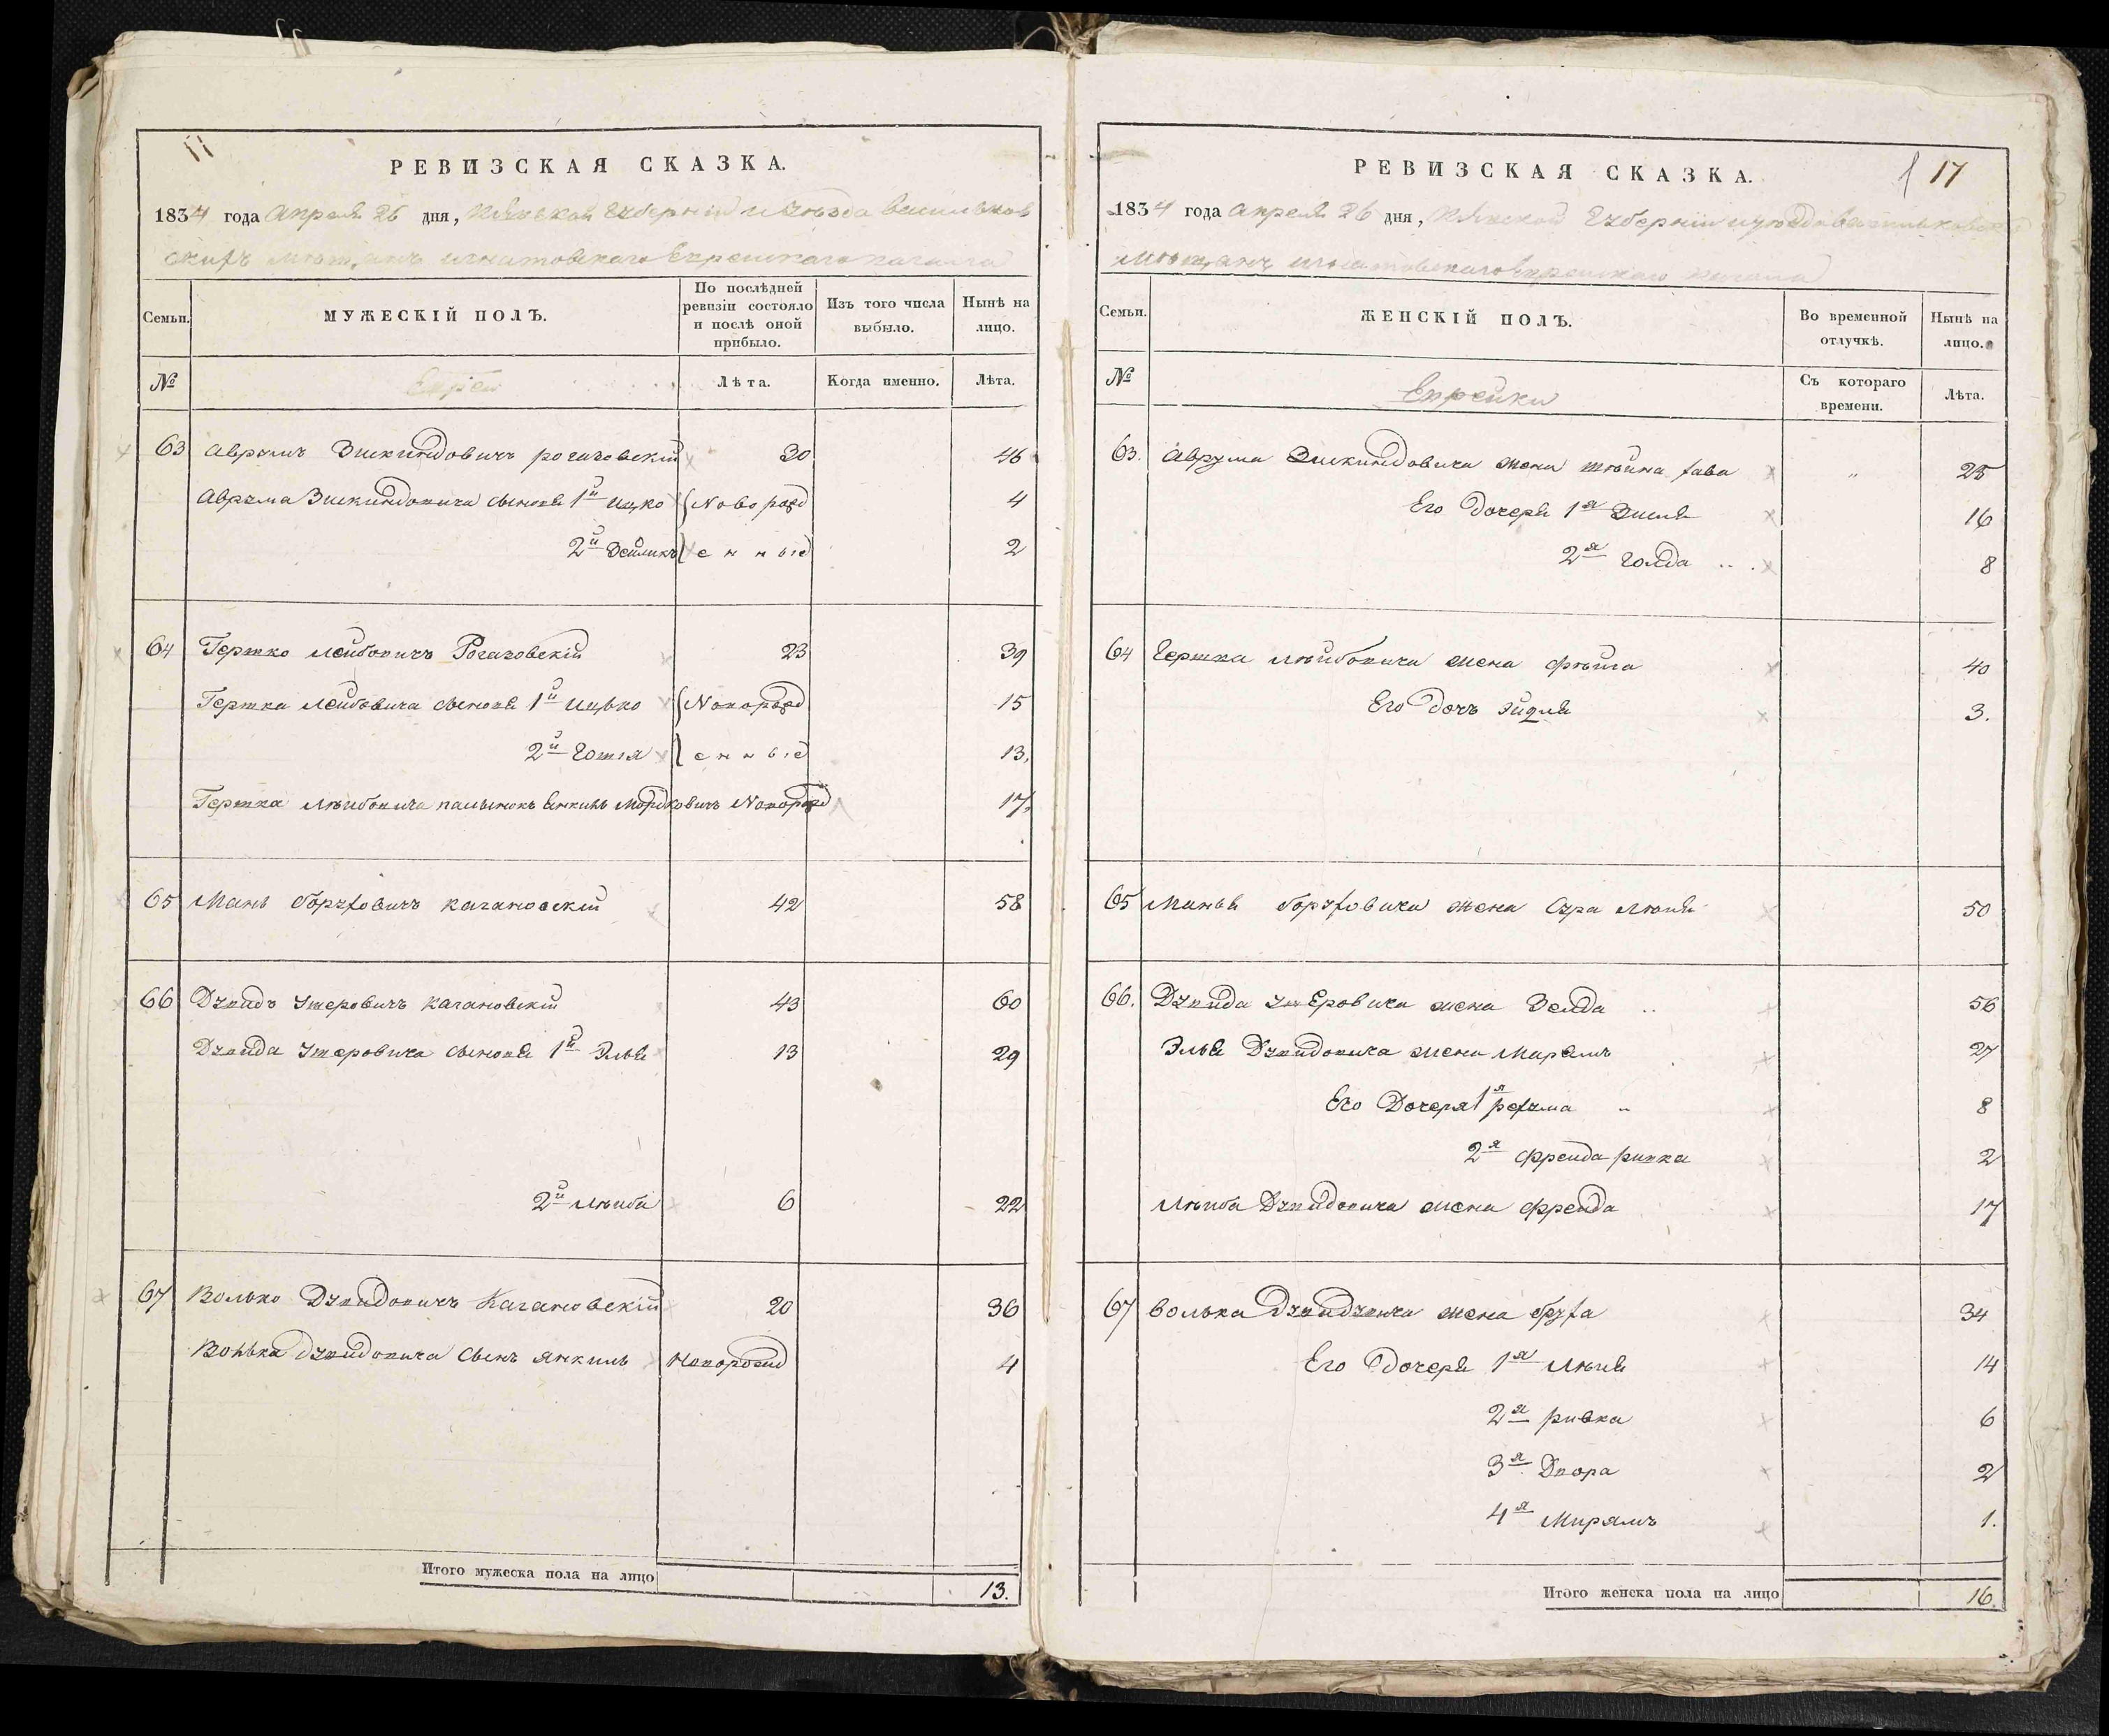 11
РЕВИЗСКАЯ СКАЗКА.
1834 года Апреля 26 дня, Киевской Губернии и уезда Васильков
скихъ мещанъ игнатовскаго Еврейскаго кагала
Семьи.
МУЖЕСКІЙ ПОЛЪ.
По послѣдней ревизіи состояло и послѣ оной прибыло.
Изъ того числа выбыло.
Нынѣ на лицо.
№
Евреи
Лѣта.
Когда именно.
Лѣта.
63 Аврумъ Зискиндовичъ рогазовскій 30 46
Аврума Зискиндовича сыновя 1й Ицко Новорожд 4
2й Зейликъ енныѣ 2
64 Гершко Лейбовичъ Рогазовскій 23 39
Гершка Лейбовича сыновя 1й Ицько Новорожд 15
2й Готля енныѣ 13.
Гершка Лѣйбовича пасынокъ Янкиль Мордковичъ Новорожд 17.
65 Мань борухович кагановскій 42 58
66 Дувидъ Умеровичъ кагановскій 43 60
Дувида Умеровича сыновя 1й Эля 13 29
2й Лѣйба 6 22
67 Волько Дувидовичъ Кагановскій 20 36
Волька Дувидовича сынъ янкиль Новорожд 4
Итого мужеска пола на лицо 13.
17
РЕВИЗСКАЯ СКАЗКА.
1834 года Апреля 26 дня, Киевской Губерніи и уезда Васильковск
мещанъ игнатовскаго Еврейскаго кагала
Семьи.
ЖЕНСКІЙ ПОЛЪ.
Во временной отлучкѣ.
Нынѣ на лицо.
№
Еврейки
Съ котораго времени.
Лѣта.
63. Аврума Зискиндовича жена хава " 25
Его Дочеря 1я Зисля 16
2я Голда 8
64 Гершка Лѣйбовича жена фѣйга 40
Его Дочъ Эйдля 3.
65 Манья боруховича жена Сура Лѣия 50
66. Дувида Умеровича жена Зелда 56
Эля Дувидовича жена Мирямъ 27
Его Дочеря 1я рехума 8
2я Фрейда ривка 2
Лѣйба Дувидовича жена фрейда 17
67 Волька Дувидовича жена бруха 34
Его Дочеря 1я Лѣия 14
2я ривка 6
3я Двора 2
4я Мирямъ 1.
Итого женска пола на лицо 16.